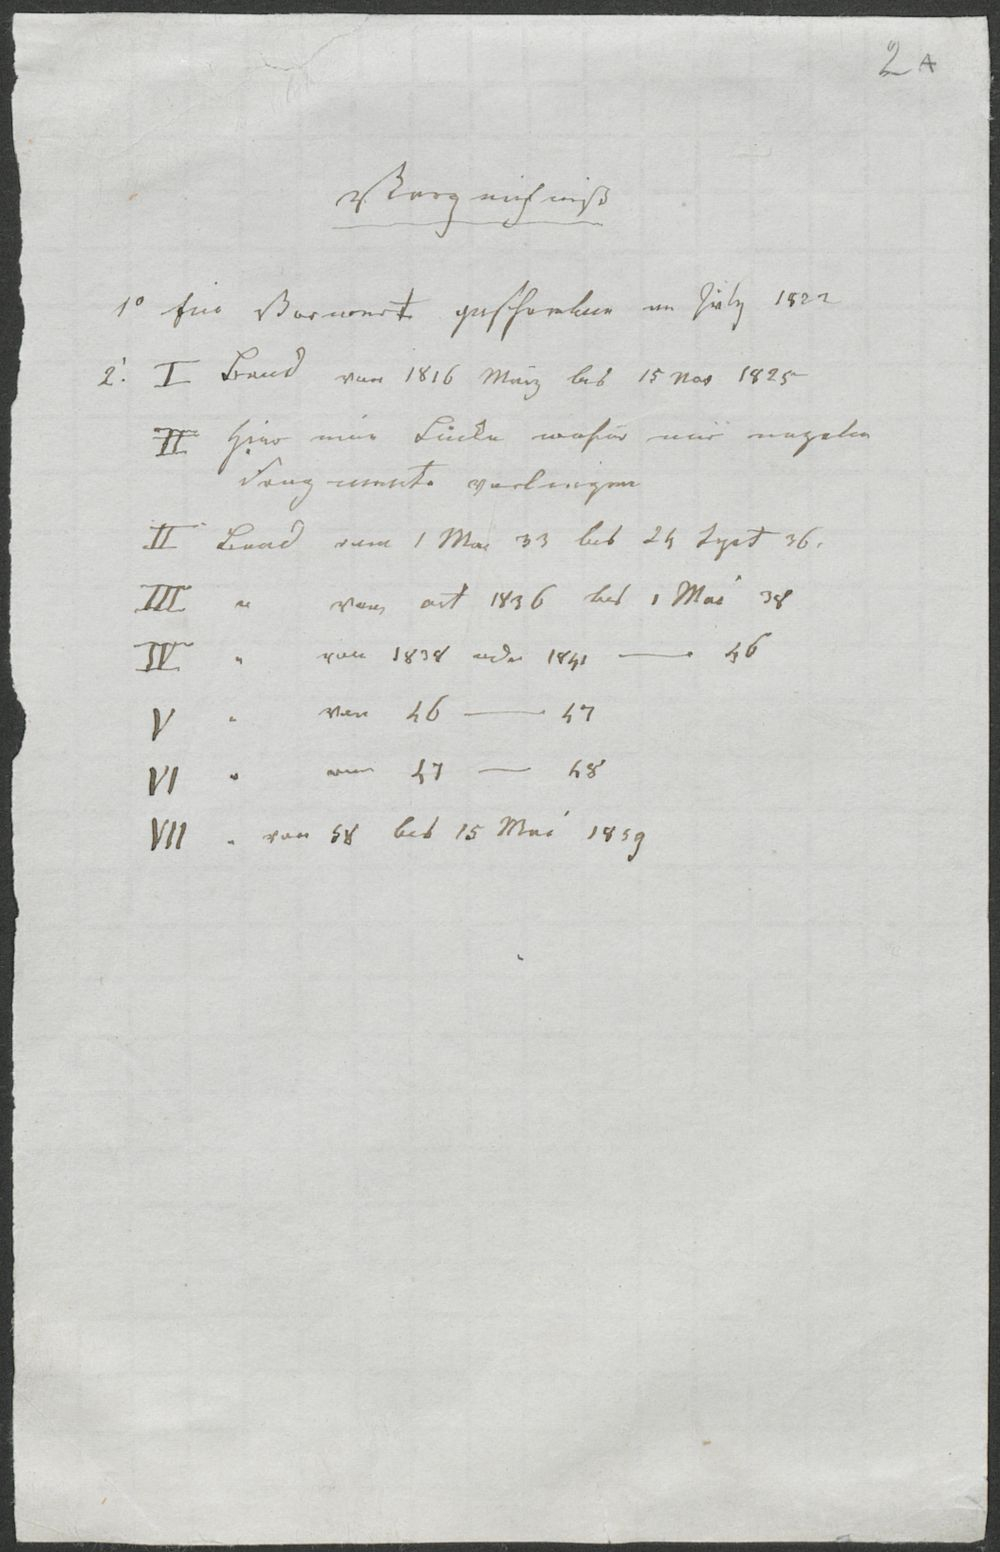 2 A
Verzeichniß
1° Ein Vorwort geschrieben im July 1822
2. I Band von 1816 März bis 15 Nov 1825
II hier eine Lücke wofür nur einzelne
Fragmente vorliegen
II Band vom 1 Mai 33 bis 24 Sept 36.
III " vom oct 1836 bis 1 Mai 38
IV " von 1838 oder 1841 — 46
V " von 46 — 47
VI " von 47 — 48
VII " von 58 bis 15 Mai 1859